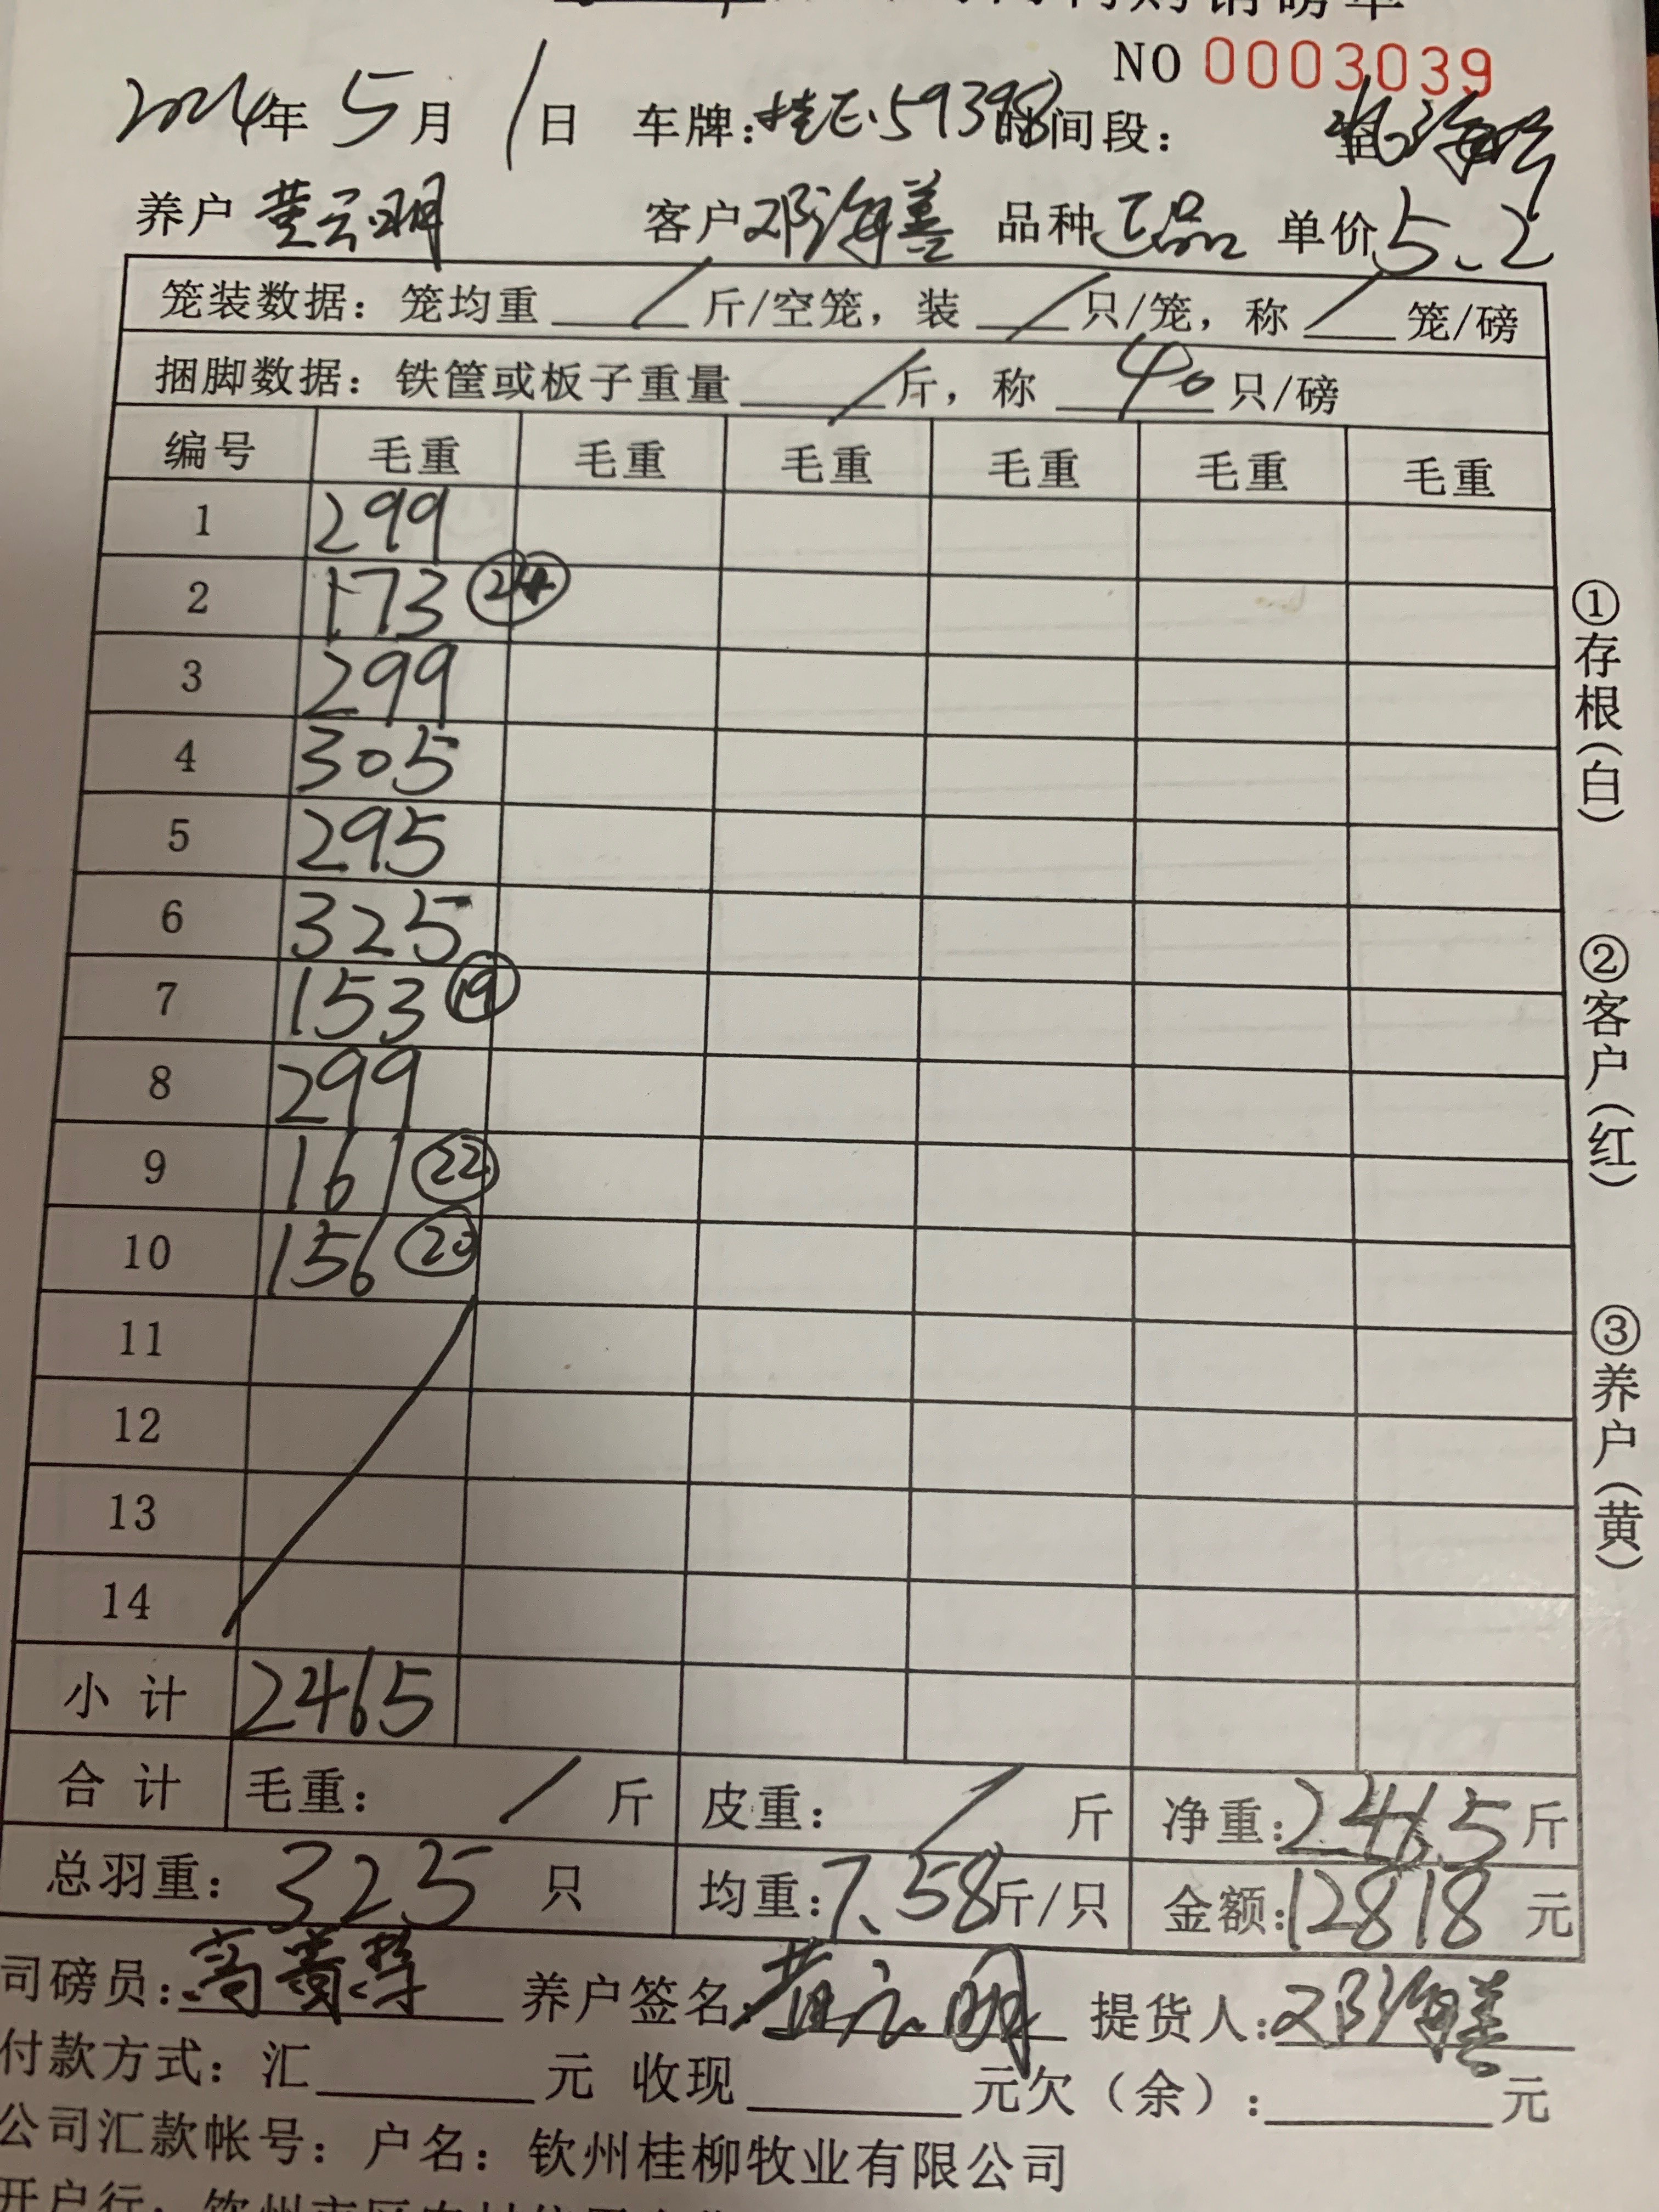 购销磅单
NO 0003039
2024年 5月 1日 车牌：桂E·59398 时间段： 至
养户 黄云明 客户 邓海善 品种 正品 单价 5.2
笼装数据：笼均重 / 斤/空笼，装 / 只/笼，称 / 笼/磅
捆脚数据：铁筐或板子重量 / 斤，称 40 只/磅
编号 毛重 毛重 毛重 毛重 毛重 毛重
1 299
2 173 24
3 299
4 305
5 295
6 325
7 153 19
8 299
9 161 22
10 156 20
11
12
13
14
小计 2465
合计 毛重： / 斤 皮重： / 斤 净重：2465斤
总羽重：325 只 均重：7.58斤/只 金额：12818 元
司磅员： 养户签名：黄云明 提货人：邓海善
付款方式：汇 元 收现 元欠（余）： 元
公司汇款帐号：户名：钦州桂柳牧业有限公司
开户行：
①存根（白）
②客户（红）
③养户（黄）